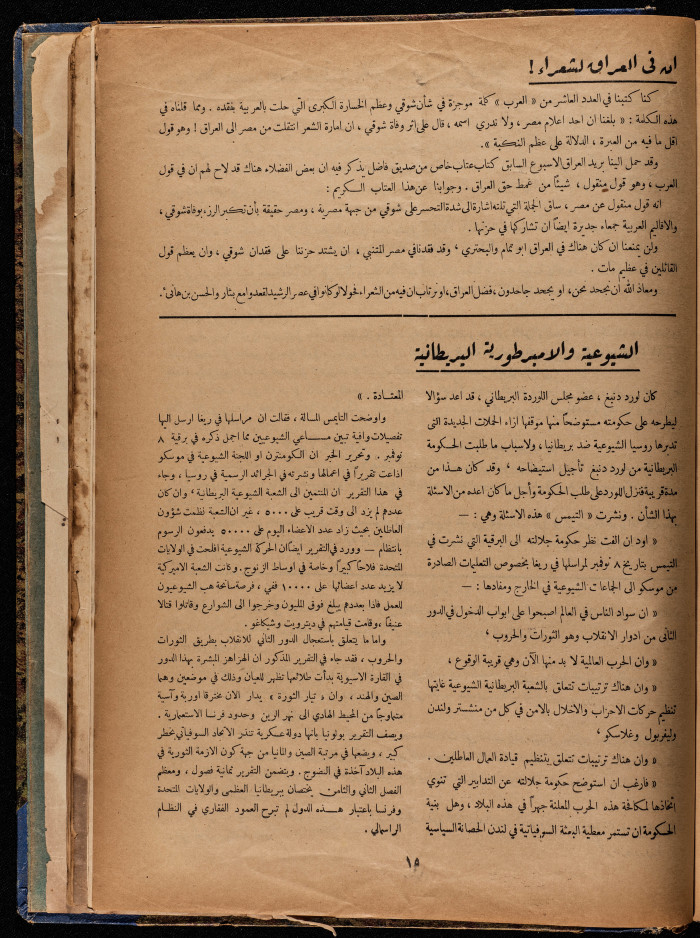 ان في العراق لشعراء !
كنا كتبنا في العدد العاشر من « العرب » كلة موجزة في شأن شوقي وعظم الخسارة الكبرى التي حلت بالعربية بفقده . ومما قلناه في
هذه الكلمة : « بلغنا ان احد اعلام مصر ، ولا ندري اسمه ، قال على اثر وفاة شوقي ، ان امارة الشعر انتقلت من مصر الى العراق ! وهو قول
اقل ما فيه من العبرة ، الدلالة على عظم النكبة » .
وقد حمل الينا بريد العراق الاسبوع السابق كتاب عتاب خاص من صديق فاضل يذكر فيه ان بعض الفضلاء هناك قد لاح لهم ان في قول
العرب ، وهو قول منقول ، شيئاً من غمط حق العراق . وجوابنا عن هذا العتاب الكريم :
انه قول منقول عن مصر ، ساق الجملة التي تلته اشارة الى شدة التحسر على شوقي من جهة مصرية ، ومصر حقيقة بأن تكبر الرزء بوفاة شوقي ،
والاقاليم العربية جمعاء جديرة ايضاً ان تشاركها في حزنها .
ولن يمنعنا ان كان هناك في العراق ابو تمام والبحتري ، وقد فقدنا في مصر المتنبي ، ان يشتد حزننا على فقدان شوقي ، وان يعظم قول
القائلين في عظيم مات .
ومعاذ الله أن نجحد نحن ، او يجحد جاحدون ، فضل العراق ، او نرتاب ان فيه من الشعراء فحولا لو كانوا في عصر الرشيد لقعدوا مع بشار والحسن بن هانىء .
الشيوعية والامبرطورية البريطانية
كان لورد دنبغ ، عضو مجلس اللوردة البريطاني ، قد اعد سؤالا
ليطرحه على حكومته مستوضحاً منها موقفها ازاء الحملات الجديدة التي
تدبرها روسيا الشيوعية ضد بريطانيا ، ولاسباب ما طلبت الحكومة
البريطانية من لورد دنبغ تأجيل استيضاحه ، وقد كان هذا من
مدة قريبة فنزل اللورد على طلب الحكومة وأجل ما كان اعده من الاسئلة
بهذا الشأن . ونشرت « التيمس » هذه الاسئلة وهي : —
« اود ان الفت نظر حكومة جلالته الى البرقية التي نشرت في
التيمس بتاريخ ٨ نوفمبر لمراسلها في ريغا بخصوص التعليمات الصادرة
من موسكو الى الجماعات الشيوعية في الخارج ومفادها : —
« ان سواد الناس في العالم اصبحوا على ابواب الدخول في الدور
الثاني من ادوار الانقلاب وهو الثورات والحروب ،
« وان الحرب العالمية لا بد منها الآن وهي قريبة الوقوع ،
« وان هناك ترتيبات تتعلق بالشعبة البريطانية الشيوعية غايتها
تنظيم حركات الاحزاب والاخلال بالامن في كل من منشستر ولندن
وليفربول وغلاسكو ،
« وان هناك ترتيبات تتعلق بتنظيم قيادة العمال العاطلين .
« فارغب ان استوضح حكومة جلالته عن التدابير التي تنوي
اتخاذها لمكافحة هذه الحرب المعلنة جهراً في هذه البلاد ، وهل بنية
الحكومة ان تستمر معطية البعثة السوفياتية في لندن الحصانة السياسية
المعتادة . »
واوضحت التايمس المسالة ، فقالت ان مراسلها في ريغا ارسل اليها
تفصيلات وافية تبين مساعي الشيوعيين مما اجمل ذكره في برقية ٨
نوفمبر . وتحرير الخبر ان الكومنترن او اللجنة الشيوعية في موسكو
اذاعت تقريراً في اعمالها ونشرته في الجرائد الرسمية في روسيا ، وجاء
في هذا التقرير ان المنتمين الى الشعبة الشيوعية البريطانية ، وان كان
عددهم لم يزد الى وقت قريب على ٥٠٠٠ ، غير ان الشعبة نظمت شؤون
العاطلين بحيث زاد عدد الاعضاء اليوم على ٥٠٠٠٠ يدفعون الرسوم
بانتظام — وورد في التقرير ايضاً ان الحركة الشيوعية افلحت في الولايات
المتحدة فلاحاً كبيراً وخاصة في اوساط الزنوج . وكانت الشعبة الاميركية
لا يزيد عدد اعضائها على ١٠٠٠٠ ففي ، فرصة سانحة هب الشيوعيون
للعمل فاذا بعددهم يبلغ فوق المليون وخرجوا الى الشوارع وقاتلوا قتالا
عنيفاً ، وقامت قيامتهم في ديترويت وشيكاغو .
واما ما يتعلق باستعجال الدور الثاني للانقلاب بطريق الثورات
والحروب ، فقد جاء في التقرير المذكور ان الهزاهز المبشرة بهذا الدور
في القارة الاسيوية بدأت طلائعها تظهر للعيان وذلك في موضعين وهما
الصين والهند ، وان « تيار الثورة » يدار الان مخترقا اوربة وآسية
متماوجاً من المحيط الهادي الى نهر الرين وحدود فرنسا الاستعمارية .
ويصف التقرير بولونيا بانها دولة عسكرية تنذر الاتحاد السوفياتي بخطر
كبير ، ويضعها في مرتبة الصين والمانيا من جهة كون الازمة الثورية في
هذه البلاد آخذة في النضوج . ويتضمن التقرير ثمانية فصول ، ومعظم
الفصل الثاني والثامن يختصان ببريطانيا العظمى والولايات المتحدة
وفرنسا باعتبار هذه الدول لم تبرح العمود الفقاري في النظام
الراسمالي .
١٨